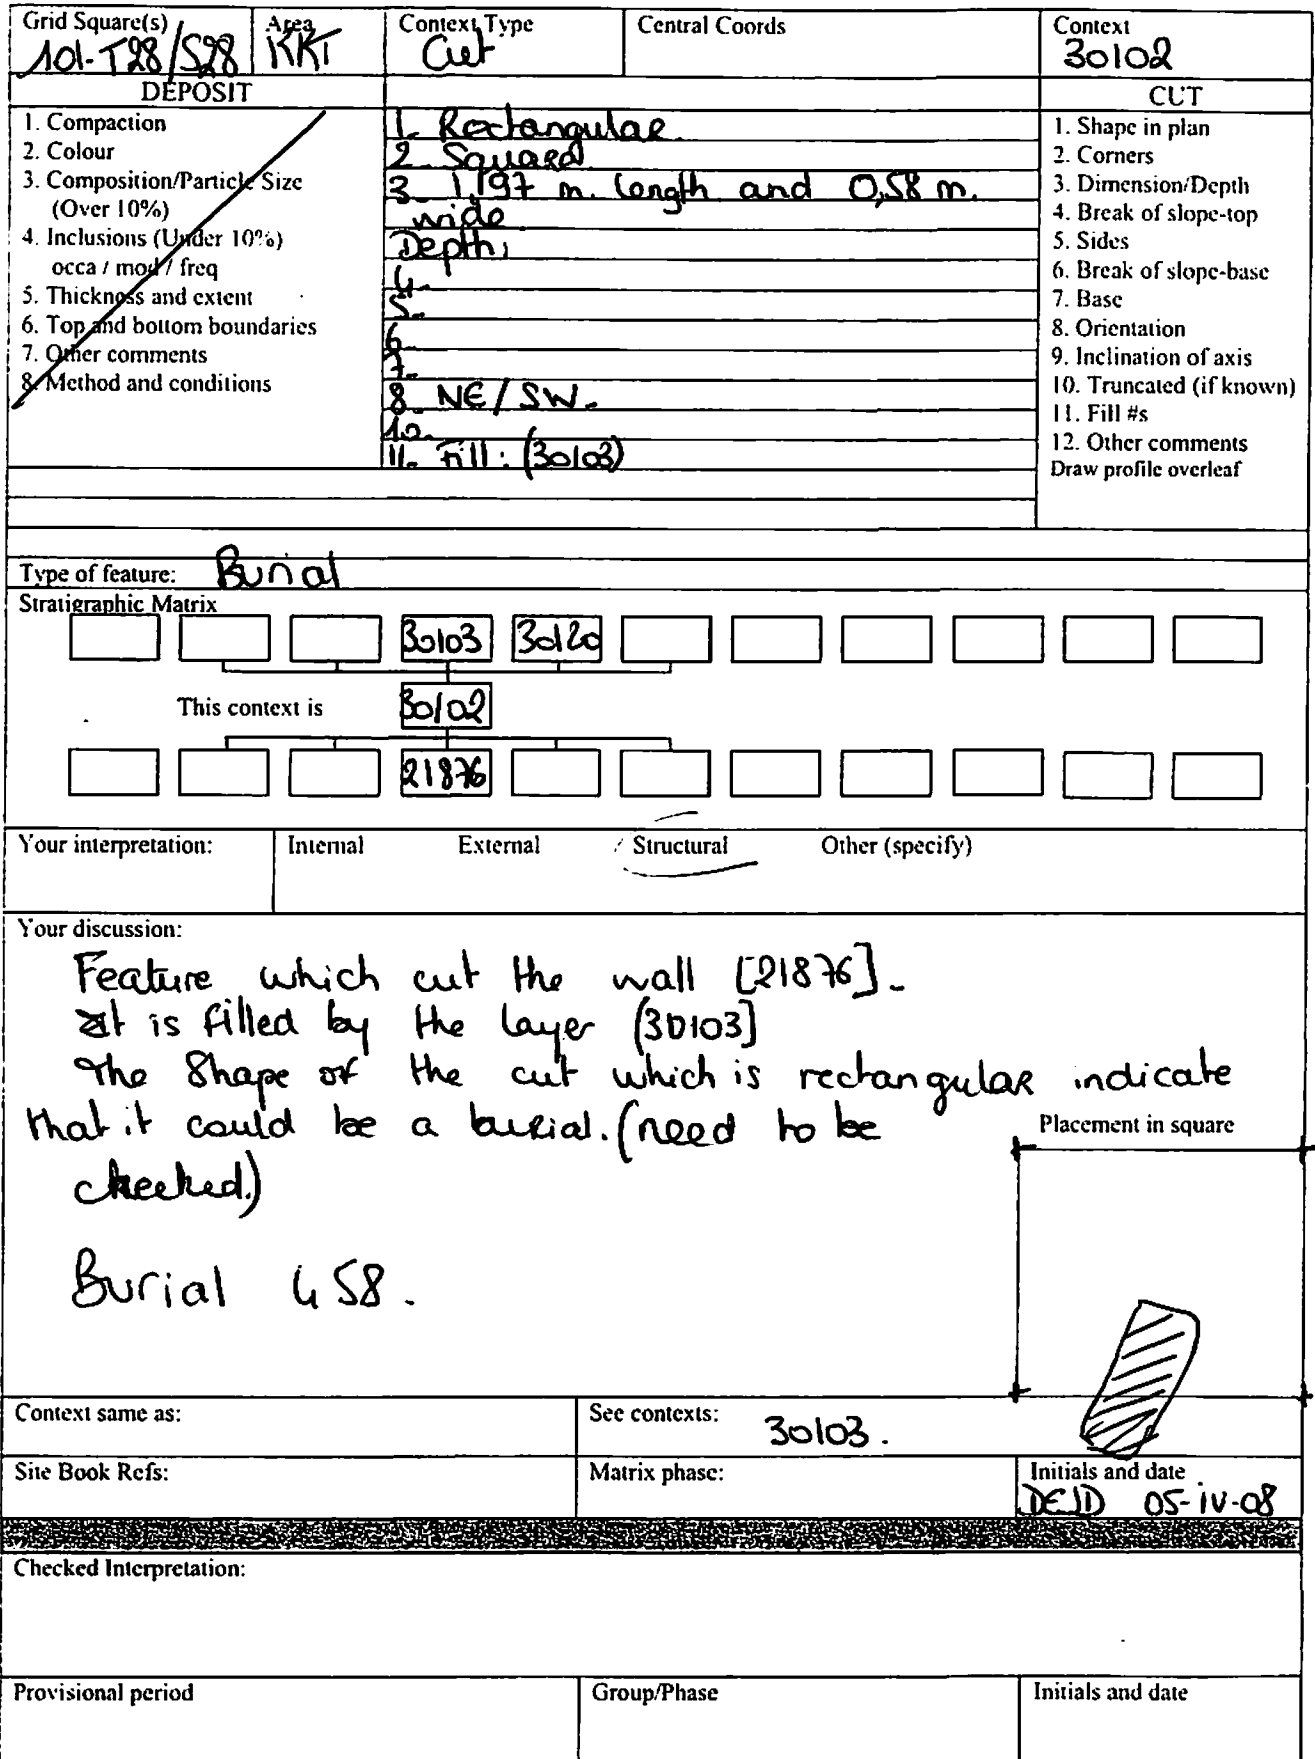 Grid Square(s) Area Context Type Central Coords Context
101-T28/S28 KKT Cut 30102
DEPOSIT CUT
1. Compaction
2. Colour
3. Composition/Particle Size
(Over 10%)
4. Inclusions (Under 10%)
occa / mod / freq
5. Thickness and extent
6. Top and bottom boundaries
7. Other comments
8. Method and conditions
1. Rectangular.
2. Squared
3. 1,197 m. length and 0,58 m.
wide
Depth:
4.
5.
6.
7.
8. NE / SW.
10.
11. Fill: (30103)
1. Shape in plan
2. Corners
3. Dimension/Depth
4. Break of slope-top
5. Sides
6. Break of slope-base
7. Base
8. Orientation
9. Inclination of axis
10. Truncated (if known)
11. Fill #s
12. Other comments
Draw profile overleaf
Type of feature: Burial
Stratigraphic Matrix
30103 30120
This context is 30102
21876
Your interpretation: Internal External Structural Other (specify)
Your discussion:
Feature which cut the wall [21876].
It is filled by the layer (30103]
The Shape of the cut which is rectangular indicate
that it could be a burial. (need to be
checked.)
Placement in square
Burial 458.
Context same as: See contexts: 30103.
Site Book Refs: Matrix phase: Initials and date
DEJD 05-iv-08
Checked Interpretation:
Provisional period Group/Phase Initials and date